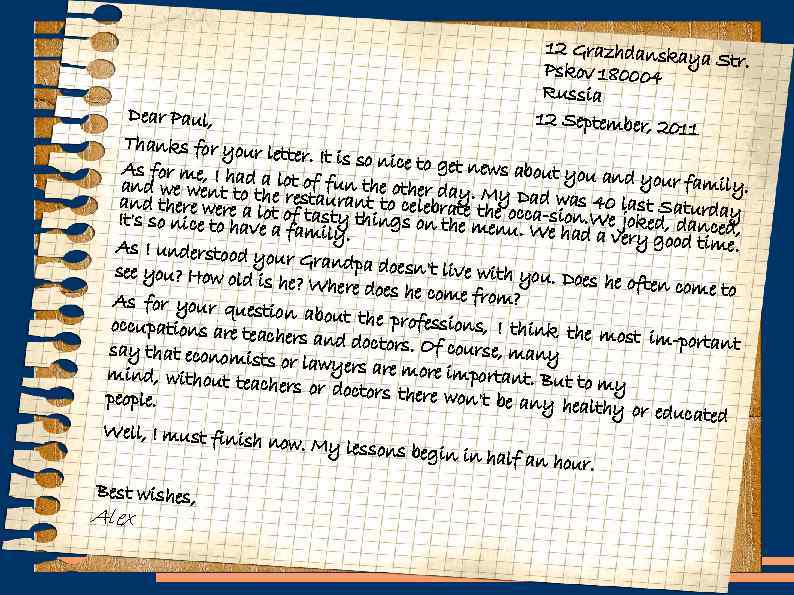 12 Grazhdanskaya Str.
Pskov 180004
Russia
12 September, 2011
Dear Paul,
Thanks for your letter. It is so nice to get news about you and your family.
As for me, I had a lot of fun the other day. My Dad was 40 last Saturday
and we went to the restaurant to celebrate the occa-sion.We joked, danced,
and there were a lot of tasty things on the menu. We had a very good time.
It's so nice to have a family.
As I understood your Grandpa doesn't live with you. Does he often come to
see you? How old is he? Where does he come from?
As for your question about the professions, I think the most im-portant
occupations are teachers and doctors. Of course, many
say that economists or lawyers are more important. But to my
mind, without teachers or doctors there won't be any healthy or educated
people.
Well, I must finish now. My lessons begin in half an hour.
Best wishes,
Alex